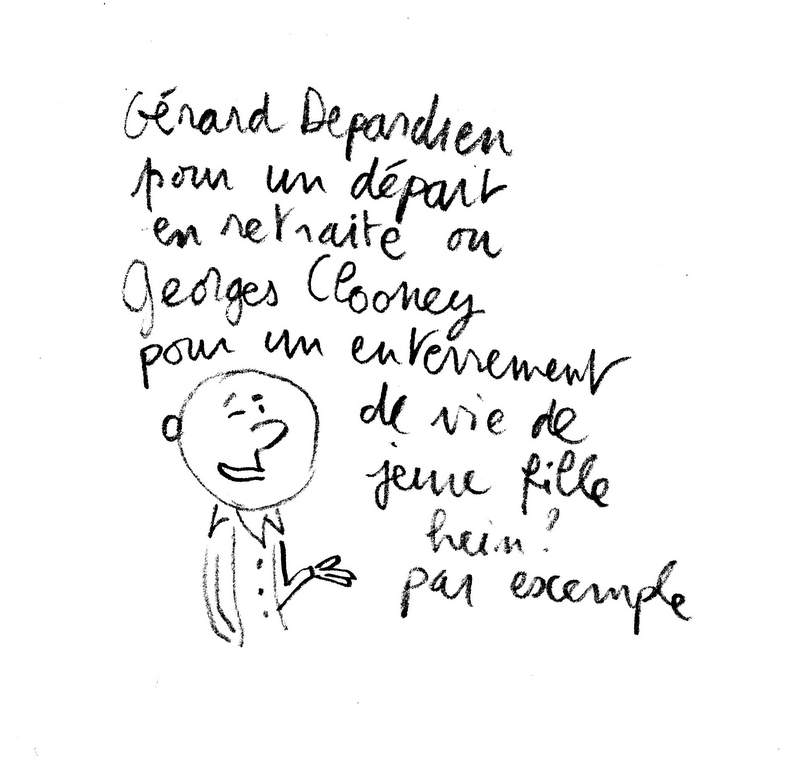 Gérard Depardieu
pour un départ
en retraite ou
Georges Clooney
pour un enterrement
de vie de
jeune fille
hein?
par exemple